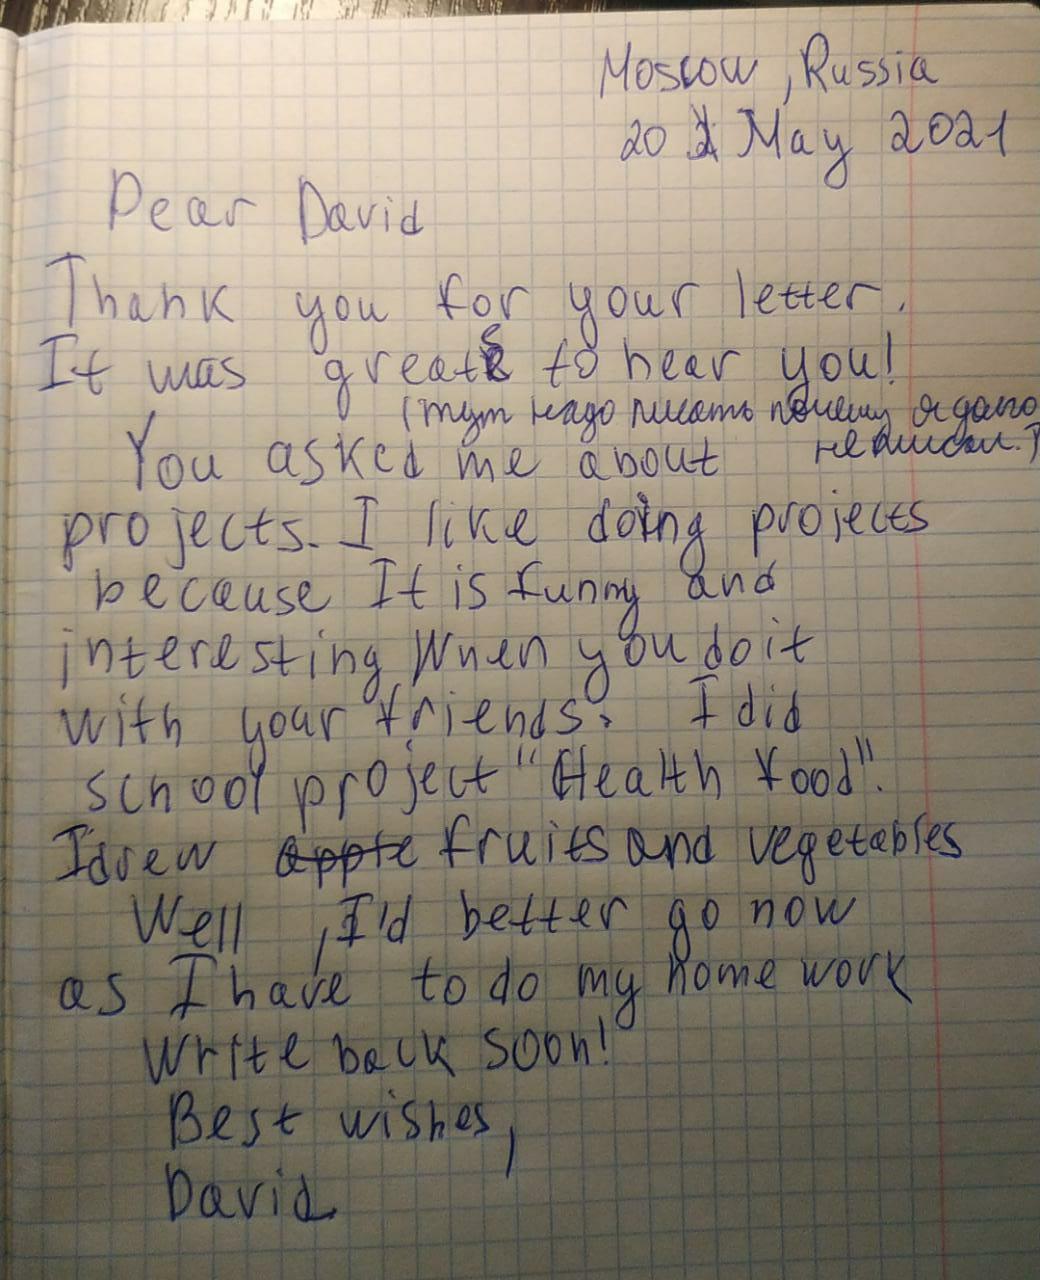 Moscow, Russia
20 May 2021
Dear David
Thank you for your letter.
It was great to hear you!
(тут надо писать почему я долго
не писал.)
You asked me about
projects. I like doing projects
because It is funny and
interesting When you do it
with your friends. I did
school project "Health food".
I drew fruits and vegetables
Well, I'd better go now
as I have to do my home work
Write back soon!
Best wishes,
David